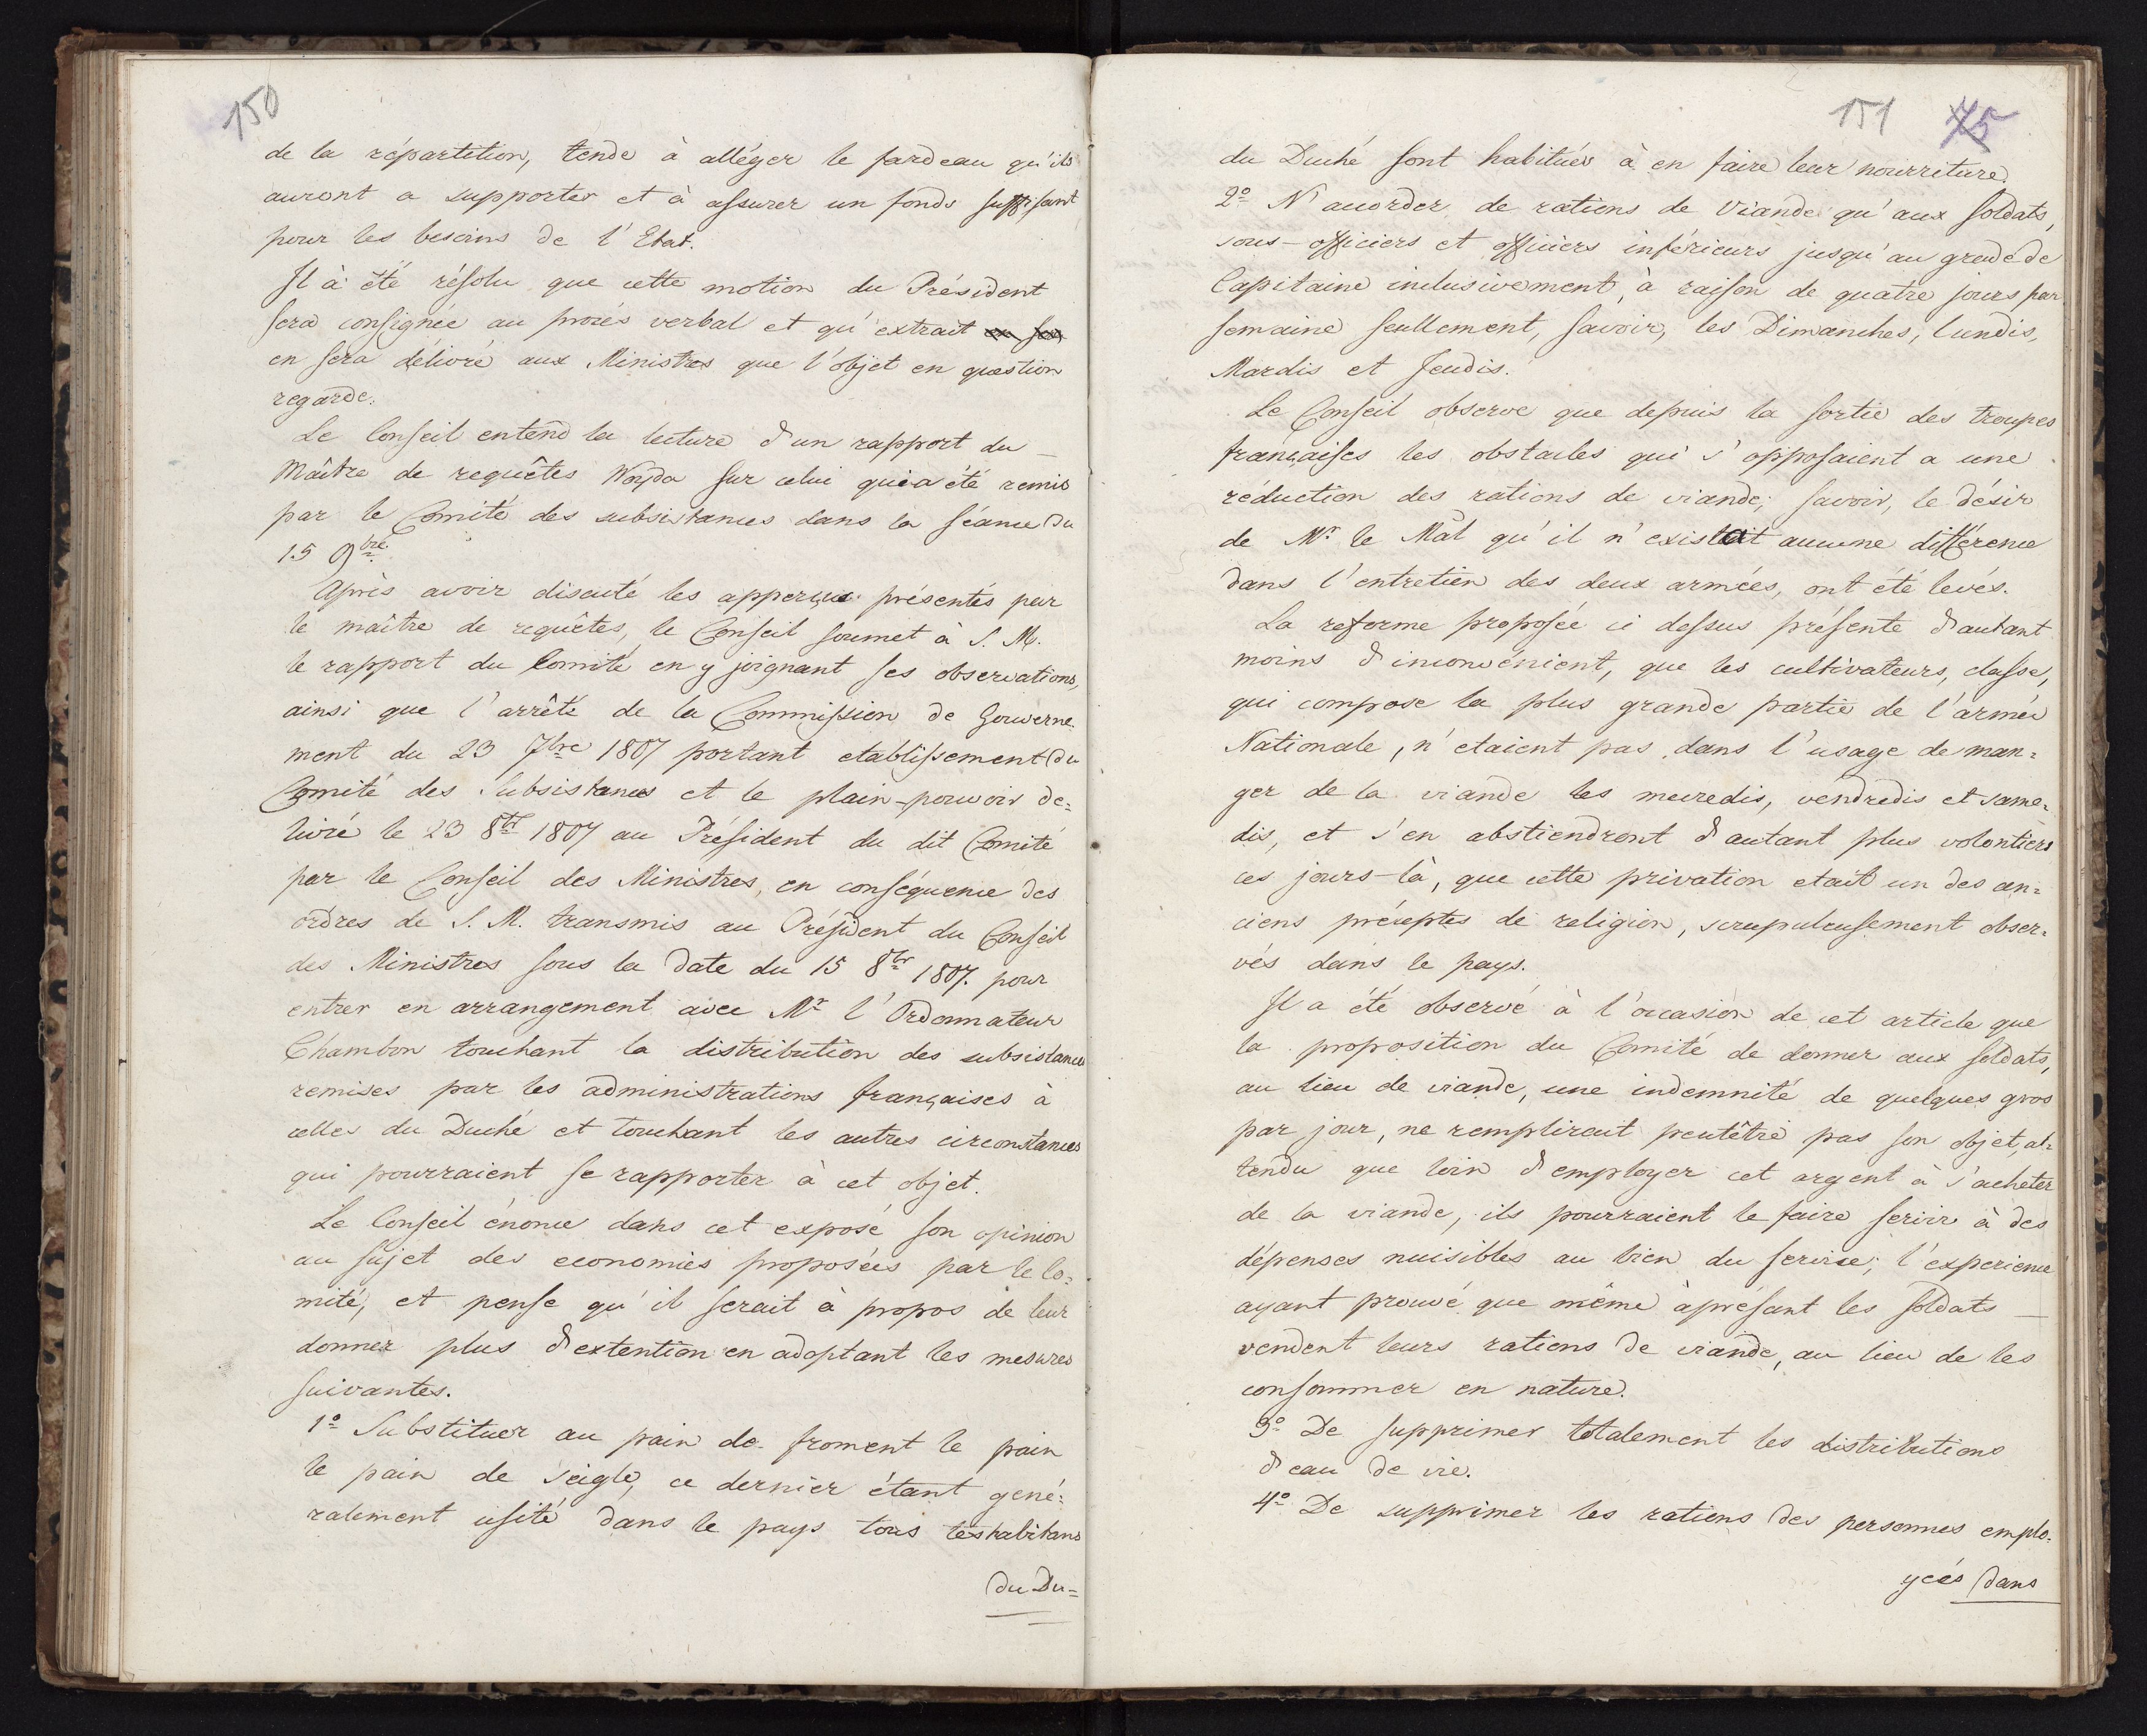 150
de la répartition, tende à alléger le fardeau qu'ils
auront a supporter et à assurer un fonds suffisant
pour les besoins de l'Etat.
Il à été résolu que cette motion du Président
sera consignée au procès verbal et qu'extrait
en sera délivré aux Ministres que l'objet en question
regarde.
Le Conseil entend la lecture d'un rapport du
Maître de requêtes Woyda sur celui qui a été remis
par le Comité des subsistances dans la séance du
15 9bre
Après avoir discuté les apperçus présentés par
le maître de requêtes, le Conseil soumet à S. M.
le rapport du Comité en y joignant ses observations,
ainsi que l'arrêté de la Commission de Gouverne-
ment du 23 7bre 1807 portant etablissement du
Comité des Subsistances et le plain-pouvoir de=
livré le 23 8br 1807 au Président du dit Comité
par le Conseil des Ministres, en conséquence des
ordres de S. M. transmis au Président du Conseil
des Ministres sous la date du 15 8br 1807. pour
entrer en arrangement avec Mr l'Ordonnateur
Chambon touchant la distribution des subsistances
remises par les administrations françaises à
celles du Duché et touchant les autres circonstances
qui pourraient se rapporter à cet objet.
Le Conseil énonce dans cet exposé son opinion
au sujet des economies proposées par le Co=
mité, et pense qu'il serait à propos de leur
donner plus d'extention en adoptant les mesures
suivantes.
1º Substituer au pain de froment le pain
le pain de seigle, ce dernier étant gené=
ralement usité dans le pays tous les habitans
du Du=
151 75
du Duché sont habitués à en faire leur nourriture.
2º N'accorder de rations de Viande qu'aux soldats,
sous-officiers et officiers inférieurs jusqu'au grade de
Capitaine inclusivement, à raison de quatre jours par
semaine seullement, savoir, les Dimanches, Lundis,
Mardis et Jeudis.
Le Conseil observe que depuis la sortie des troupes
françaises les obstacles qui s'opposaient a une
réduction des rations de viande; savoir, le désir
de Mr. le Mal qu'il n'existait aucune différence
dans l'entretien des deux armées, ont été levés.
La reforme proposée ci dessus présente d'autant
moins d'inconvénient, que les cultivateurs, classe,
qui compose la plus grande partie de l'armée
Nationale, n'etaient pas dans l'usage de man=
ger de la viande les mecredis, vendredis et same=
dis, et s'en abstiendront d'autant plus volontiers
ces jours-là, que cette privation etait un des an=
ciens préceptes de religion, scrupuleusement obser=
vés dans le pays.
Il a été observé à l'occasion de cet article que
la proposition du Comité de donner aux soldats,
au lieu de viande, une indemnité de quelques gros
par jour, ne remplirait peutêtre pas son objet, at=
tendu que loin d'employer cet argent à s'acheter
de la viande, ils pourraient le faire servir à des
dépenses nuisibles au bien du service; l'experience
ayant prouvé que même àprésant les soldats
vendent leurs rations de viande, au lieu de les
consommer en nature.
3º De supprimer totalement les distributions
d'eau de vie.
4º De supprimer les rations des personnes emplo=
yées dans